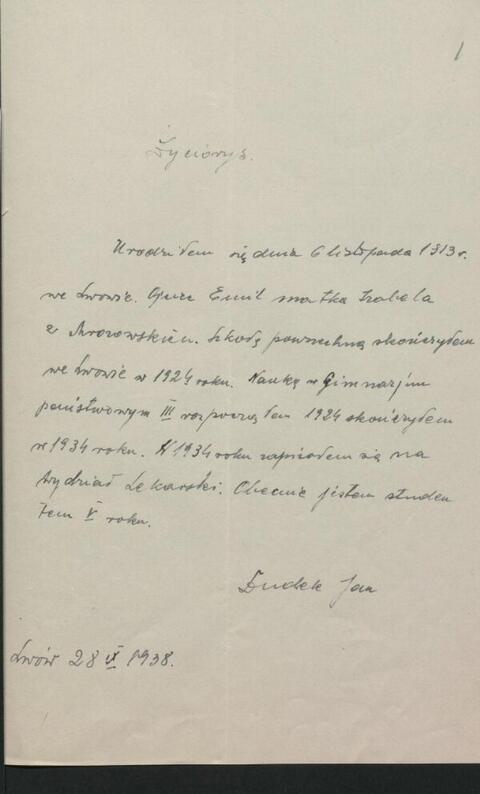 1
Życiorys.
Urodziłem się dnia 6 listopada 1913 r.
we Lwowie. Ojciec Emil matka Izabela
z Mrozowskich. Szkołę powszechną skończyłem
we Lwowie w 1924 roku. Naukę w Gimnazjum
państwowym III rozpocząłem 1924 skończyłem
w 1934 roku. W 1934 roku zapisałem się na
Wydział Lekarski. Obecnie jestem studen
tem V roku.
Dudek Jan
Lwów 28 IX 1938.